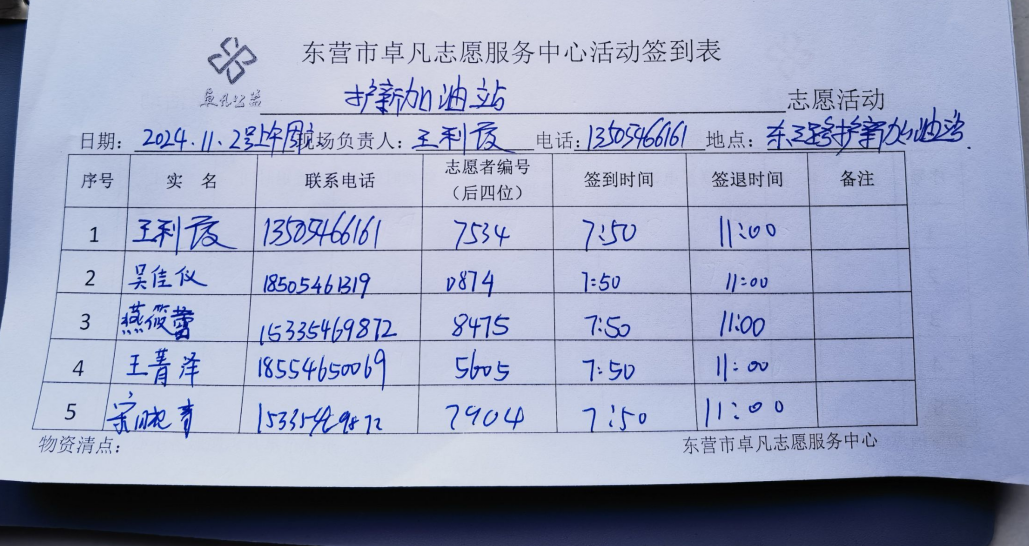 东营市卓凡志愿服务中心活动签到表
卓凡公益 护新加油站 志愿活动
日期: 2024.11.2号上午周六 现场负责人: 王利霞 电话: 13505466161 地点: 东三路护新加油站.
序号 实 名 联系电话 志愿者编号(后四位) 签到时间 签退时间 备注
1 王利霞 13505466161 7534 7:50 11:00
2 吴佳仪 18505461319 0874 7:50 11:00
3 燕筱蕾 15335469872 8475 7:50 11:00
4 王菁泽 18554650069 5605 7:50 11:00
5 宋晓青 15335469872 7904 7:50 11:00
物资清点: 东营市卓凡志愿服务中心